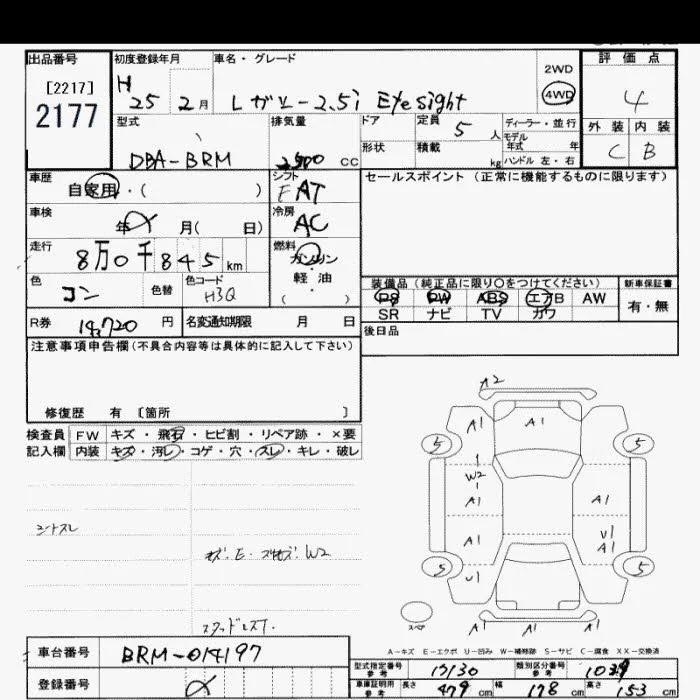 出品番号 初度登録年月 車名・グレード 評価点
[2217] H 2WD
2177 25 2月 レガシー2.5i EyeSight 4WD 4
型式 排気量 ドア 定員 5人 ディーラー・並行 外装 内装
モデル年式 年
DBA-BRM 2500 CC 形状 積載 kg ハンドル 左・右 C B
車歴 自家用・( ) シフト FAT セールスポイント(正常に機能するものに限ります)
車検 年 月( 日) 冷房 AC
走行 8万0千845km 燃料 ガソリン
色 コン 色替 色コード H3Q 軽・油
( ・ )
装備品(純正品に限り〇をつけてください) 新車保証書
PS PW ABS エアB AW 有・無
SR ナビ TV カワ
R券 14,720円 名変通知期限 月 日 後日品
注意事項申告欄(不具合内容等は具体的に記入して下さい)
修復歴 有 〔箇所 〕
検査員 FW キズ・飛石・ヒビ割・リペア跡・×要
記入欄 内装 キズ・汚レ・コゲ・穴・スレ・キレ・破レ
シートスレ
W2
A2
A1 A1
5 5
W2
A1 A1
A1 U1
A1
5 5
U1
スペア A1 A1 A1
A-キズ E-エクボ U-凹み W-補修跡 S-サビ C-腐食 XX-交換済
車台番号 BRM-014197
登録番号
型式指定番号 参考 17130 類別区分番号 参考 1039
車庫証明用 参考 長さ 479cm 幅 178cm 高さ 153cm